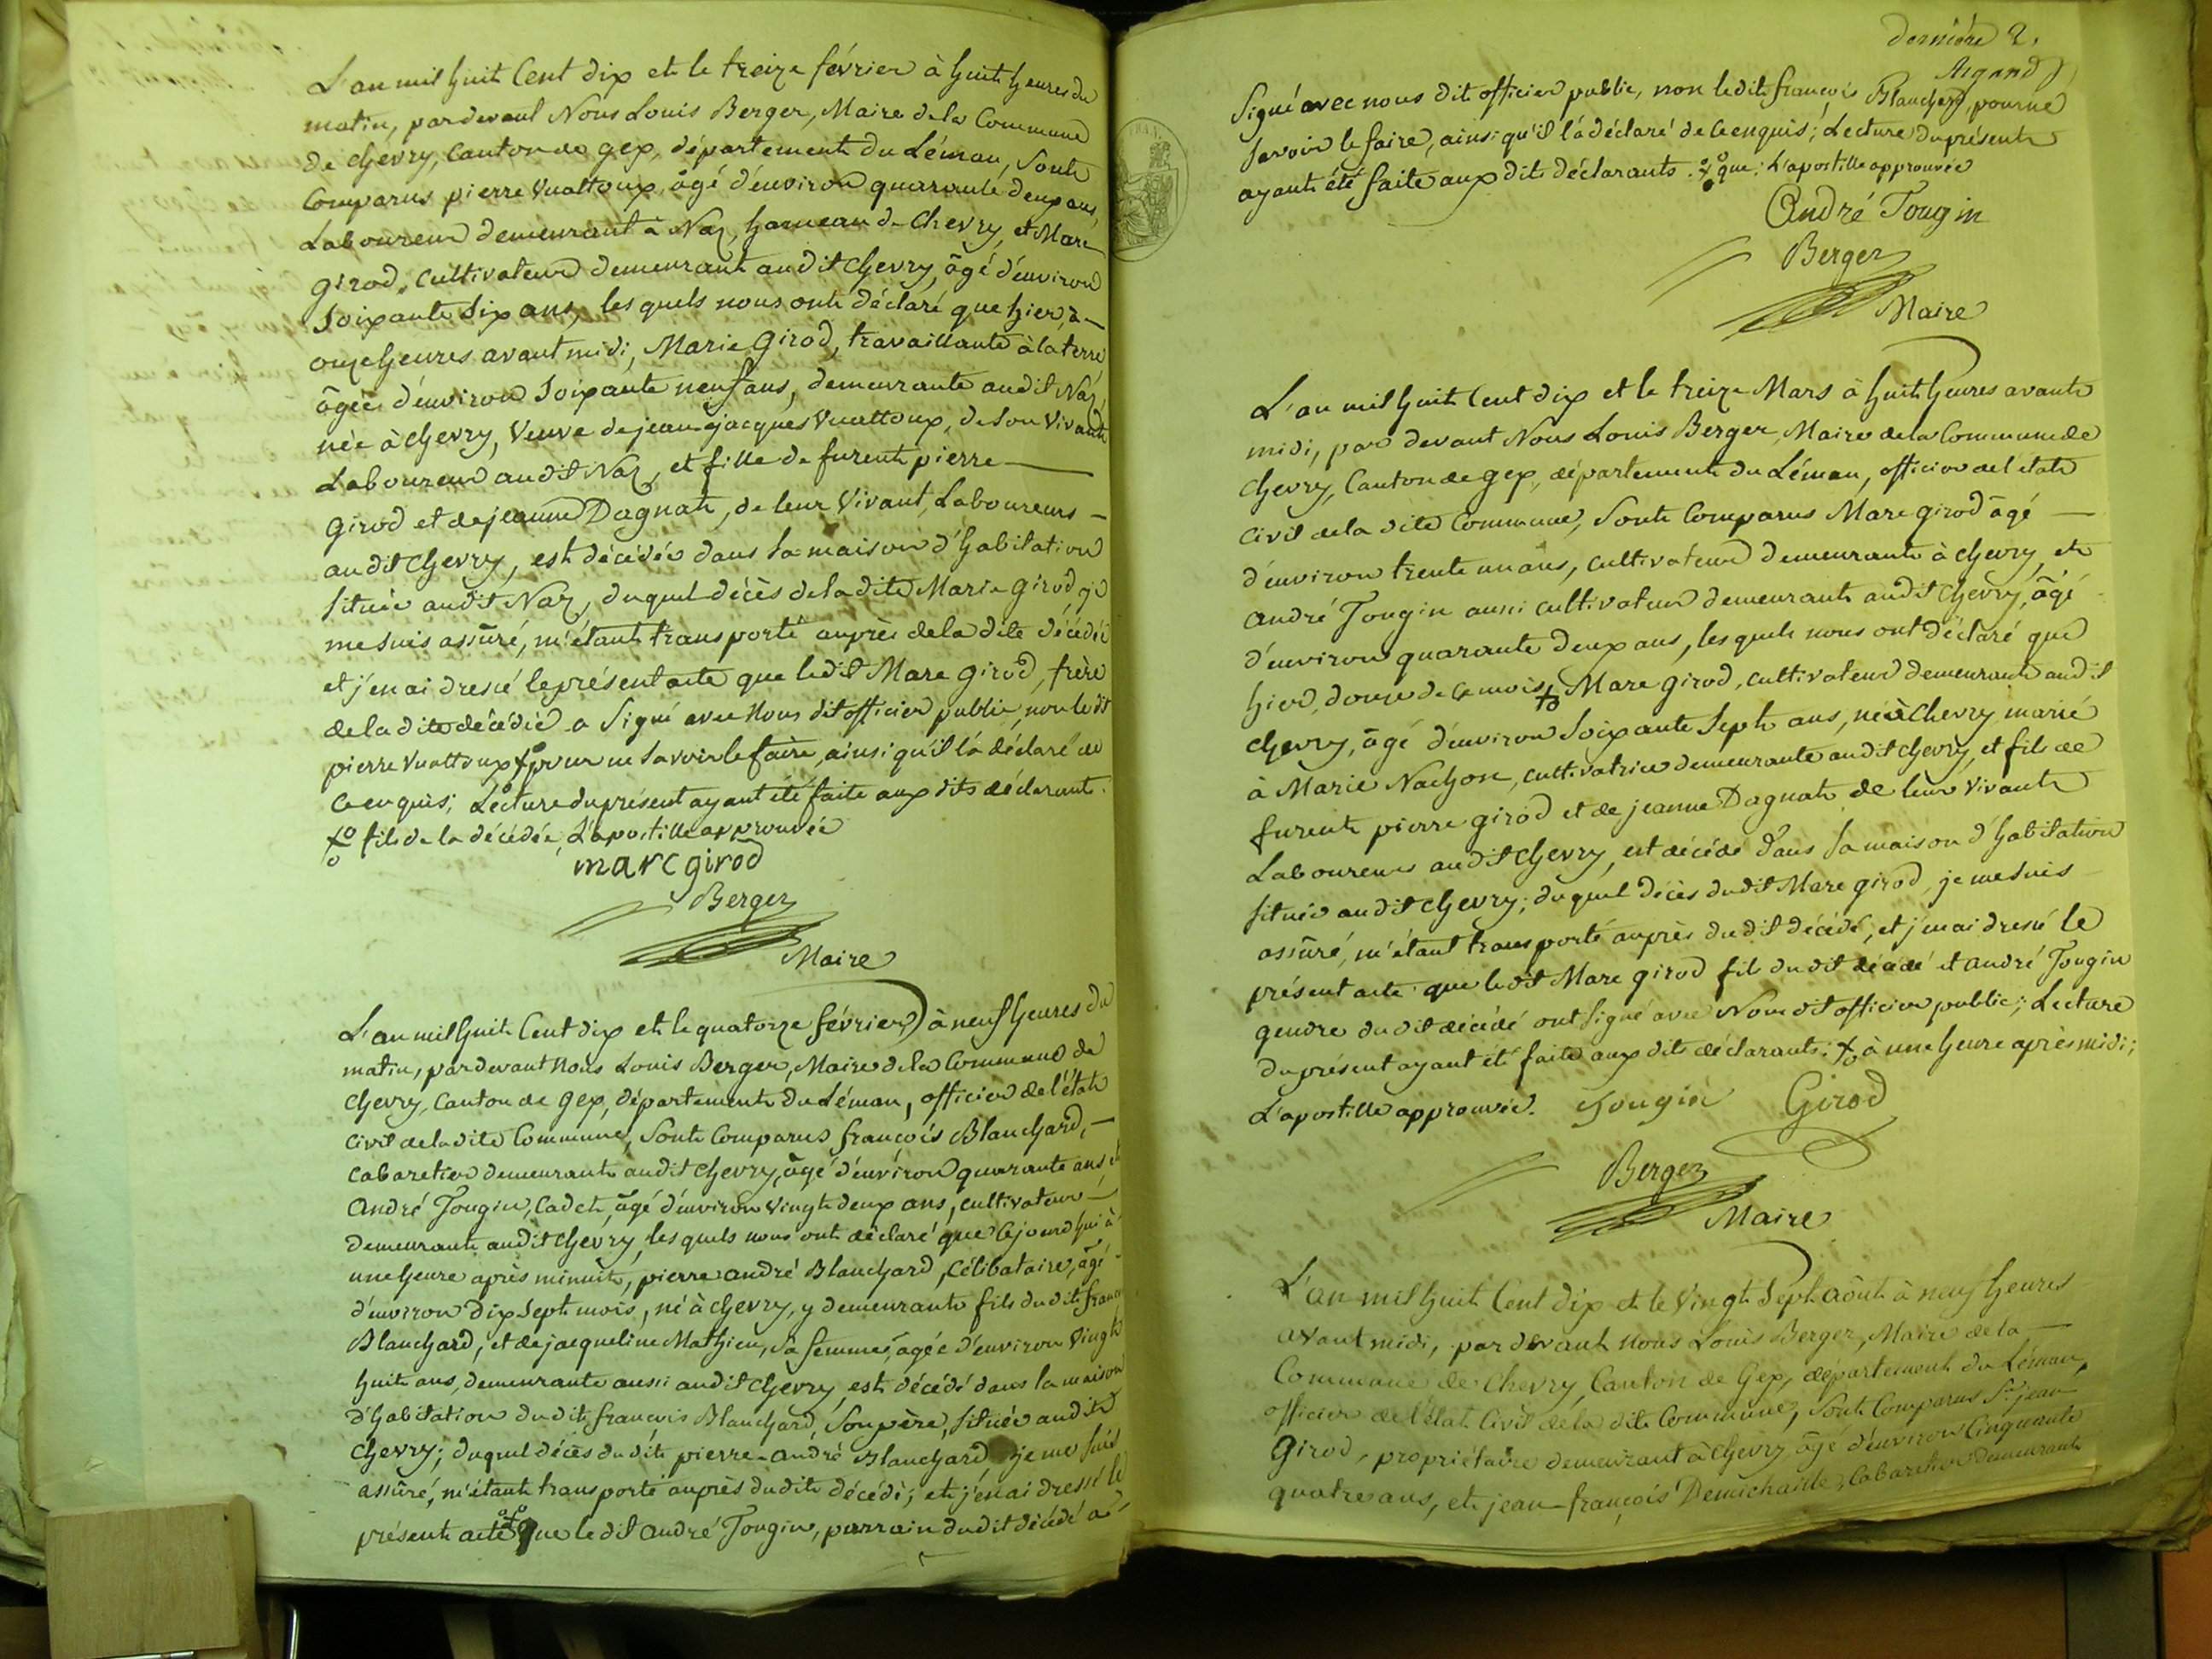 L'an mil huit Cent dix et le treize février à huit heures du
matin, pardevant Nous Louis Berger, Maire dela Commune
de chévry, Canton de gex, département du Léman, Sont
Comparus pierre Vuattoux, âgé d'environ quarante deux ans,
Laboureur demeurant à Naz, hameau de Chevry, et Marc
girod, cultivateur demeurant audit chevry, âgé d'environ
Soixante Six ans, les quels nous ont déclaré que hier, à —
onze heures avant midi, Marie girod, travaillante à la terre,
âgée d'environ Soixante neuf ans, demeurante audit Naz,
née à chevry, Veuve de jean-jacques Vuattoux, de Son Vivant
Laboureur audit Naz, et fille de furent pierre —
girod et de jeanne Dagnat, de leur Vivant, Laboureurs —
audit chevry, est décédée dans Sa maison d'habitation
Située audit Naz, duquel décès dela dite Marie girod, je
me Suis assûré, m'étant transporté auprès dela dite décédée
et j'en ai dressé le présent acte que ledit Marc girod, frère
de la dite décédée a Signé avec Nous dit officier public, non ledit
pierre Vuattoux pour ne Savoir le faire, ainsi qu'il l'a déclaré de
Ce enquis; Lecture du présent ayant été faite aux dits déclarants.
fils de la décédée, L'apostille approuvée
marc girod
Berger
Maire
L'an mil huit Cent dix et le quatorze février à neuf heures du
matin, pardevant Nous Louis Berger, Maire dela Commune de
chevry, Canton de gex, département du Léman, officier de l'état
Civil dela dite Commune, Sont Comparus françois Blanchard, —
Cabaretier demeurant audit chevry, âgé d'environ quarante ans et
andré Tougin, Cadet, âgé d'environ Vingt deux ans, cultivateur —
demeurant audit chevry, les quels nous ont déclaré que Cejourd'hui à
une heure après minuit, pierre andré Blanchard, Célibataire, âgé
d'environ dix Sept mois, né à chevry, y demeurant, fils dudit
Blanchard, et de jacqueline Mathieu, Sa femme, âgée d'environ Vingt
huit ans, demeurante aussi audit chevry, est décédé dans la maison
d'habitation dudit françois Blanchard, Son père, Située audit
Chevry; duquel décès dudit pierre-andré Blanchard je me Suis
assûré, m'étant transporté auprès dudit décédé, et j'en ai dressé le
présent acte que ledit andré Tougin, parrain dudit décédé a
dernière 2.
Argand
Signé avec nous dit officier public, non ledit françois Blanchard, pour ne
Savoir le faire, ainsi qu'il l'a déclaré de Ce enquis; Lecture du présent
ayant été faite aux dits déclarants. que: L'apostille approuvée
André Tougin
Berger
Maire
L'an mil huit Cent dix et le treize Mars à huit heures avant
midi, par devant Nous Louis Berger, Maire dela Commune de
chevry, Canton de gex, département du Léman, officier del'état
Civil dela dite Commune, Sont Comparus Marc girod âgé —
d'environ trente un ans, cultivateur demeurant à chevry, et
andré Tougin aussi cultivateur demeurant audit Chevry, âgé
d'environ quarante deux ans, les quels nous ont déclaré que
hier, douze de Ce mois, Marc girod, cultivateur demeurant audit
chevry, âgé d'environ Soixante Sept ans, né à Chevry, marié
à Marie Nachon, cultivatrice demeurante audit chevry, et fils de
furent pierre girod et de jeanne Dagnat, de leur Vivant
Laboureurs audit chevry, est décédé dans Sa maison d'habitation
Située audit chevry; duquel décès dudit Marc girod, je me Suis
assûré, m'étant transporté auprès dudit décédé, et j'en ai dressé le
présent acte que ledit Marc girod fils dudit décédé et andré Tougin
gendre dudit décédé ont Signé avec Nous dit officier public; Lecture
du présent ayant été faite aux dits déclarants: à une heure après midi;
L'apostille approuvée. Tougin Girod
Berger
Maire
L'an mil huit Cent dix et le Vingt Sept août à neuf heures
avant midi, par devant nous Louis Berger, Maire de la —
Commune de Chevry, Canton de Gex, département du Léman,
officier de l'état Civil dela dite Commune, Sont Comparus Sr jean
Girod, propriétaire demeurant à chevry, âgé d'environ Cinquante
quatre ans, et jean-françois Demichaille, Cabaretier demeurant